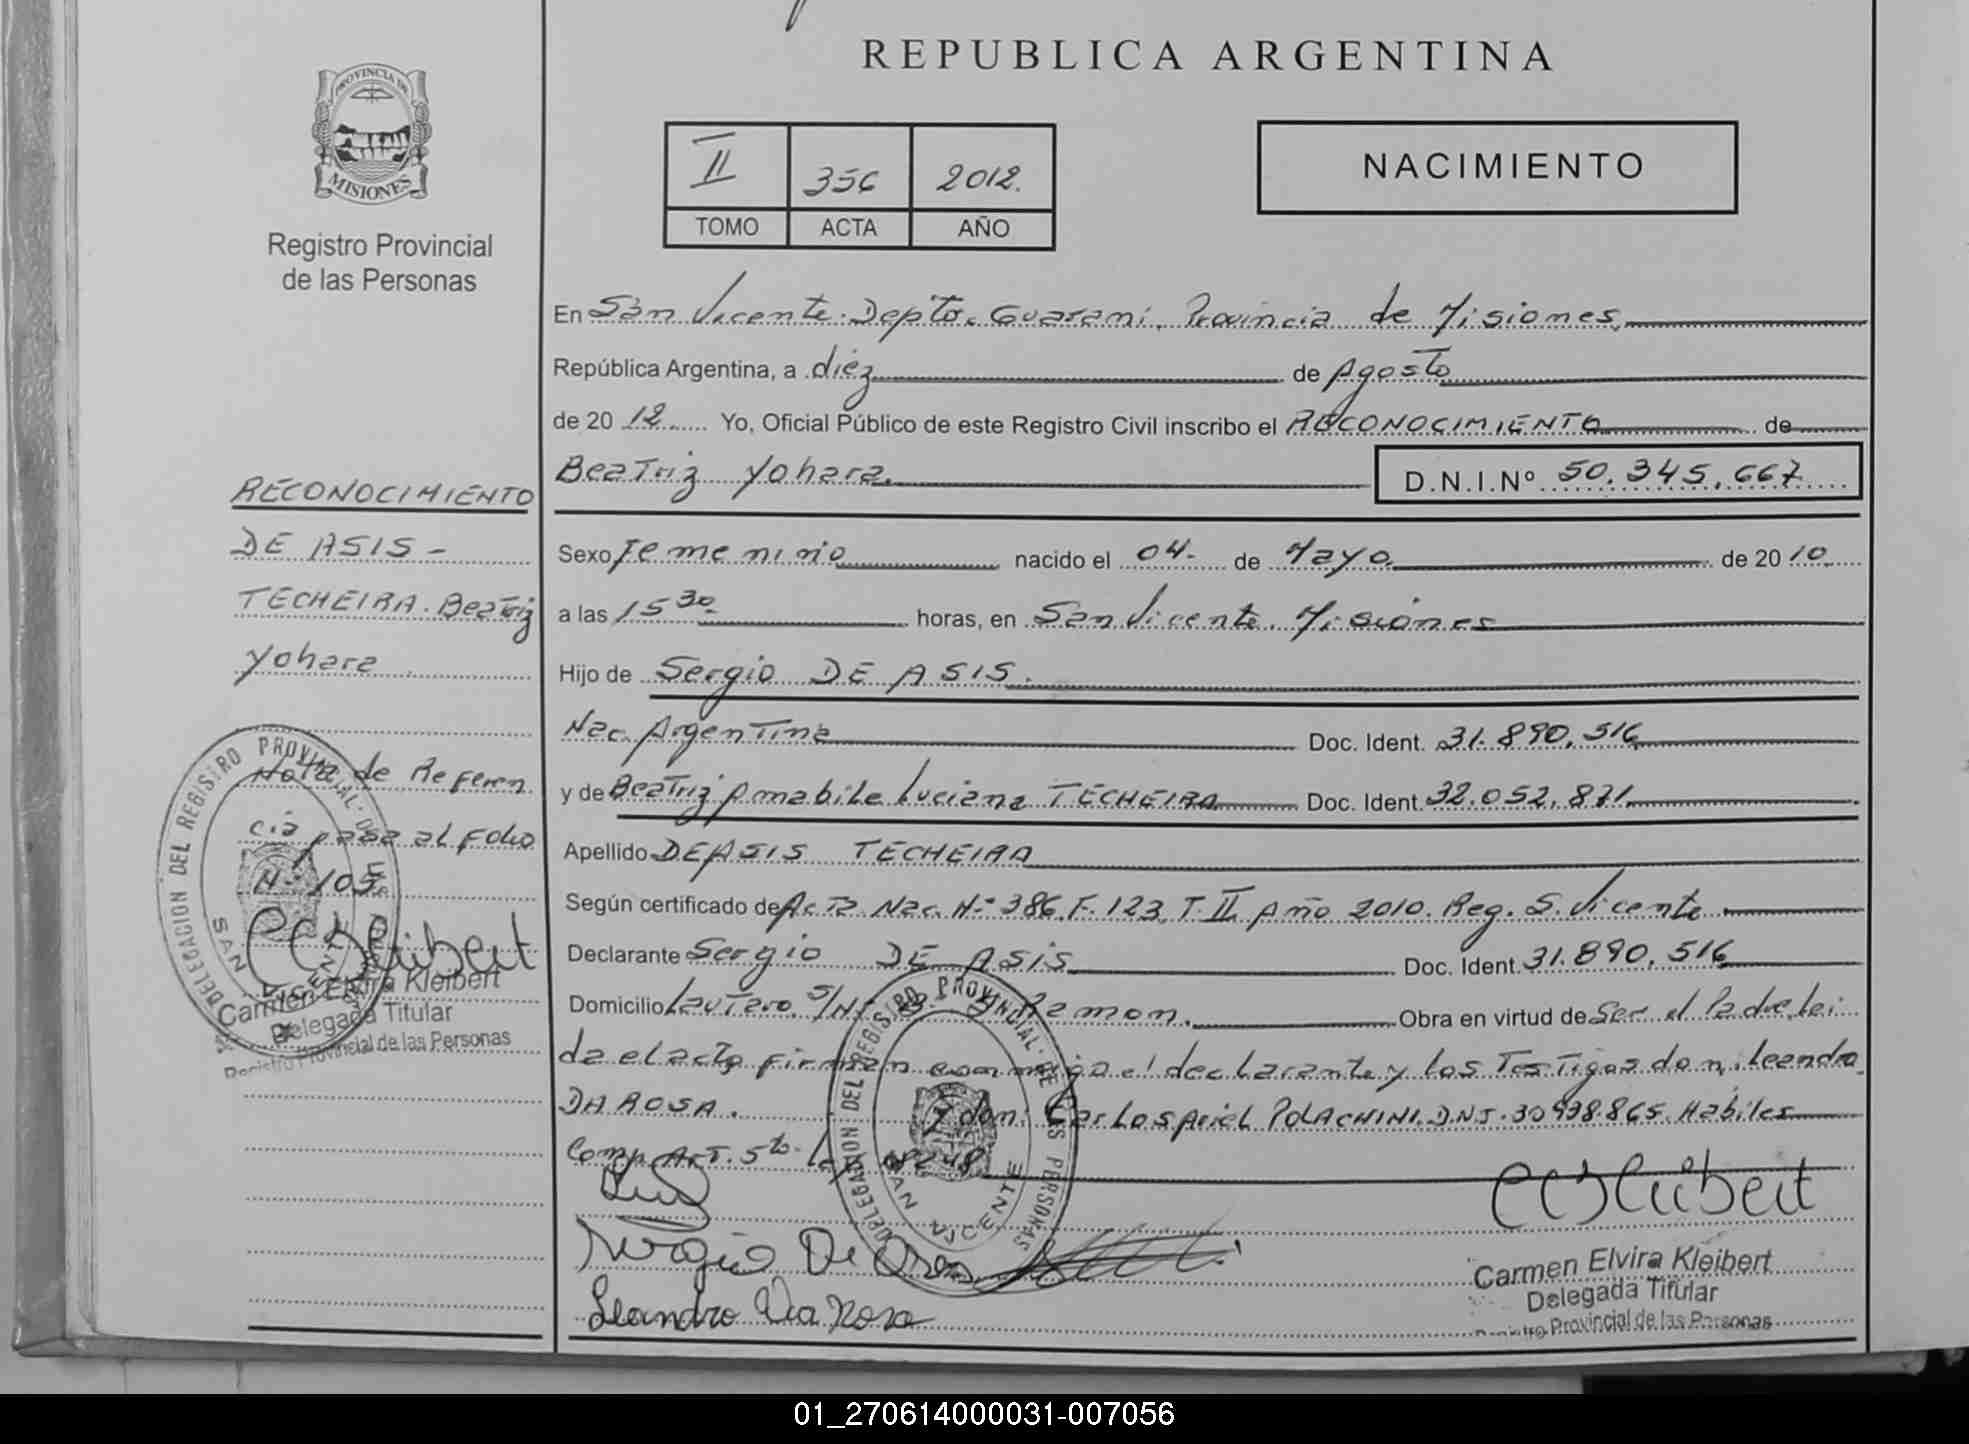 REPUBLICA ARGENTINA
PROVINCIA DE
MISIONES
Registro Provincial
de las Personas
II 356 2012.
TOMO ACTA AÑO
NACIMIENTO
En San Vicente. Depto. Guarani. Provincia de Misiones.
República Argentina, a diez de Agosto
de 20 12 Yo, Oficial Público de este Registro Civil inscribo el RECONOCIMIENTO de
Beatriz Yohara.
D.N.I.Nº 50.345.667
RECONOCIMIENTO
DE ASIS -
TECHEIRA. Beatriz
Yohara
Nota de Referen
cia pasa al Folio
Nº 105
Carmen Elvira Kleibert
Delegada Titular
Registro Provincial de las Personas
DELEGACION DEL REGISTRO PROVINCIAL DE LAS PERSONAS
SAN VICENTE
Sexo Femenino nacido el 04. de Mayo. de 20 10.
a las 15 30 horas, en San Vicente. Misiones
Hijo de Sergio DE ASIS.
Nac. Argentina Doc. Ident. 31.890.516
y de Beatriz Amabile Luciana TECHEIRA Doc. Ident. 32.052.871.
Apellido DE ASIS TECHEIRA
Según certificado de Acta Nac. Nº 386. F. 123. T. II. Año 2010. Reg. S. Vicente
Declarante Sergio DE ASIS Doc. Ident. 31.890.516
Domicilio Lautaro. S/Nº Ramon. Obra en virtud de Ser el Padre. Lei
da el acta firman conmigo el declarante y los Testigos don: Leandro
DA ROSA. y don: Carlos Ariel POLACHINI. D.N.I. 30.938.865. Habiles
Comp. Art. 5to. Ley
DELEGACION DEL REGISTRO PROVINCIAL DE LAS PERSONAS
SAN VICENTE
Sergio De Asis
Leandro Da Rosa
Carmen Elvira Kleibert
Delegada Titular
Registro Provincial de las Personas
01_270614000031-007056